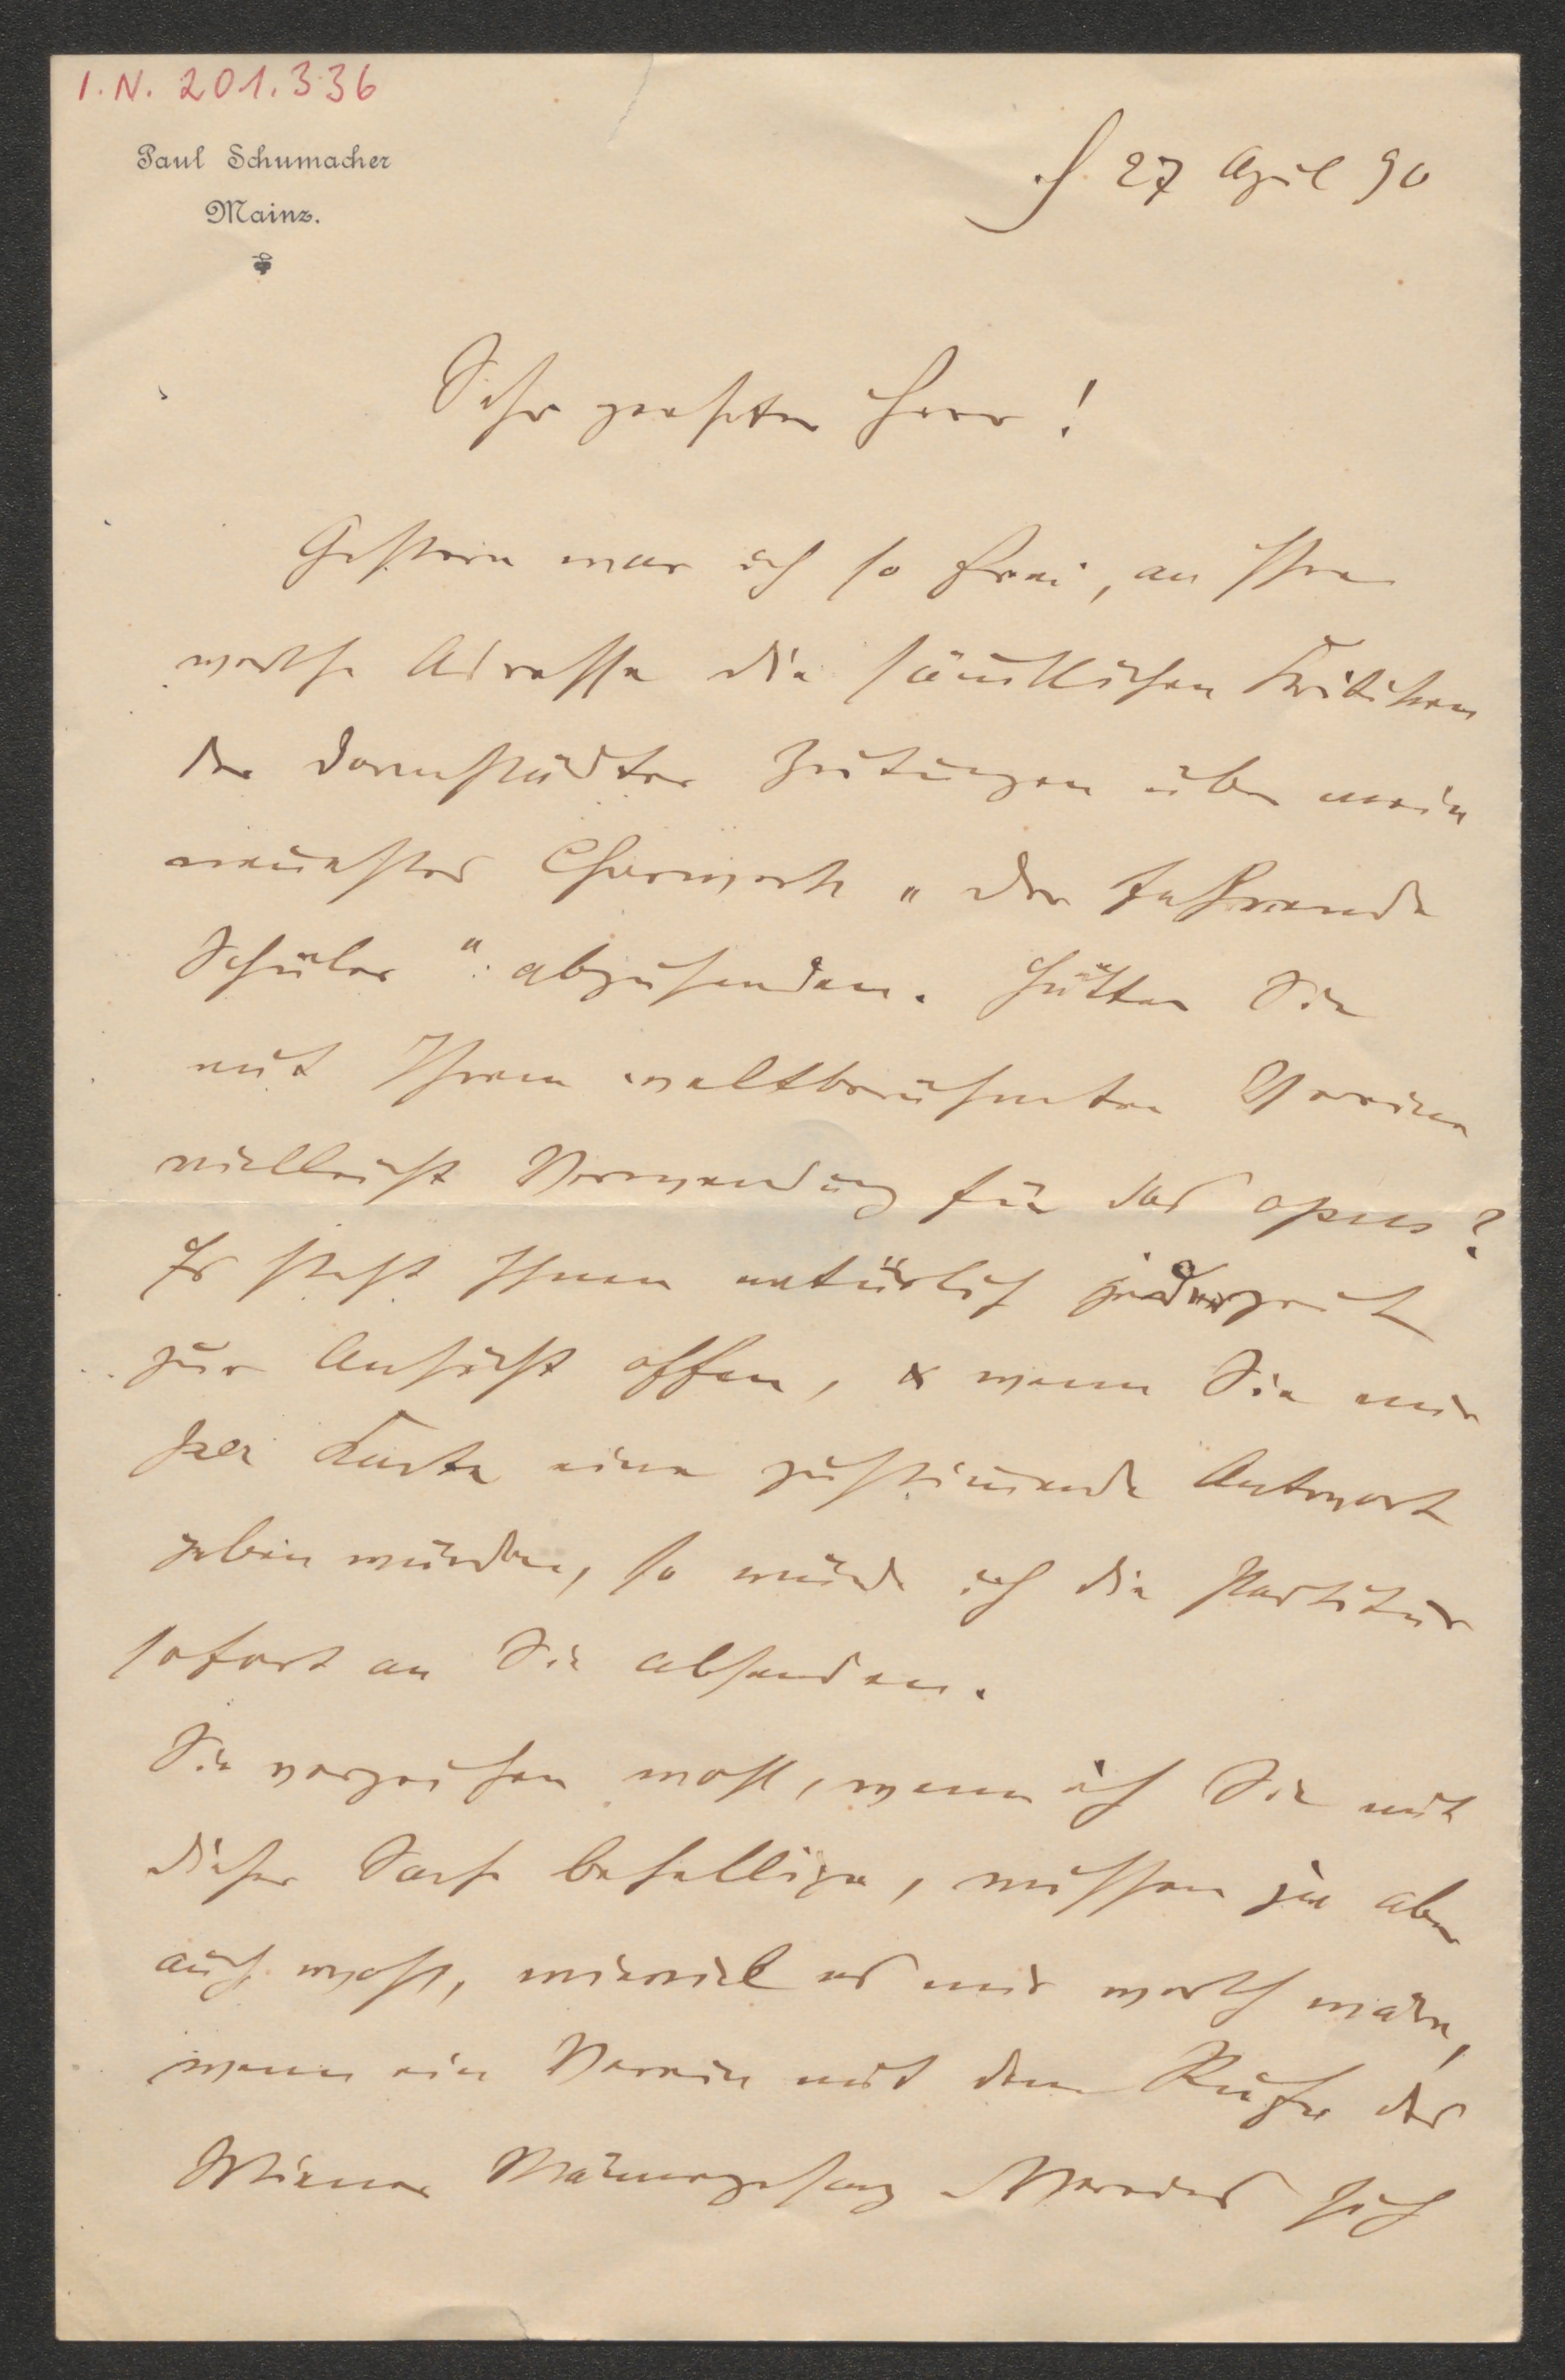 I.N. 201.336
Paul Schumacher
Mainz.
27 April 90
Sehr geehrter Herr!
Gestern war ich so frei, an Ihre
werthe Adresse die sämtlichen Kritiken
der Darmstädter Zeitungen über mein
neuestes Chorwerk „der fahrende
Schüler“ abzusenden. Hätten Sie
mit Ihrem weltberühmten Verein
vielleicht Verwendung für das opus?
Es steht Ihnen natürlich jederzeit
zur Ansicht offen, & wenn Sie mir
per Karte eine zustim̄ende Antwort
geben würden, so würde ich die Partitur
sofort an Sie absenden.
Sie verzeihen wohl, wenn ich Sie mit
dieser Sache behellige, wissen ja aber
auch wohl, wieviel es mir werth wäre,
wenn ein Verein mit dem Rufe des
Wiener Männergesang Vereines sich